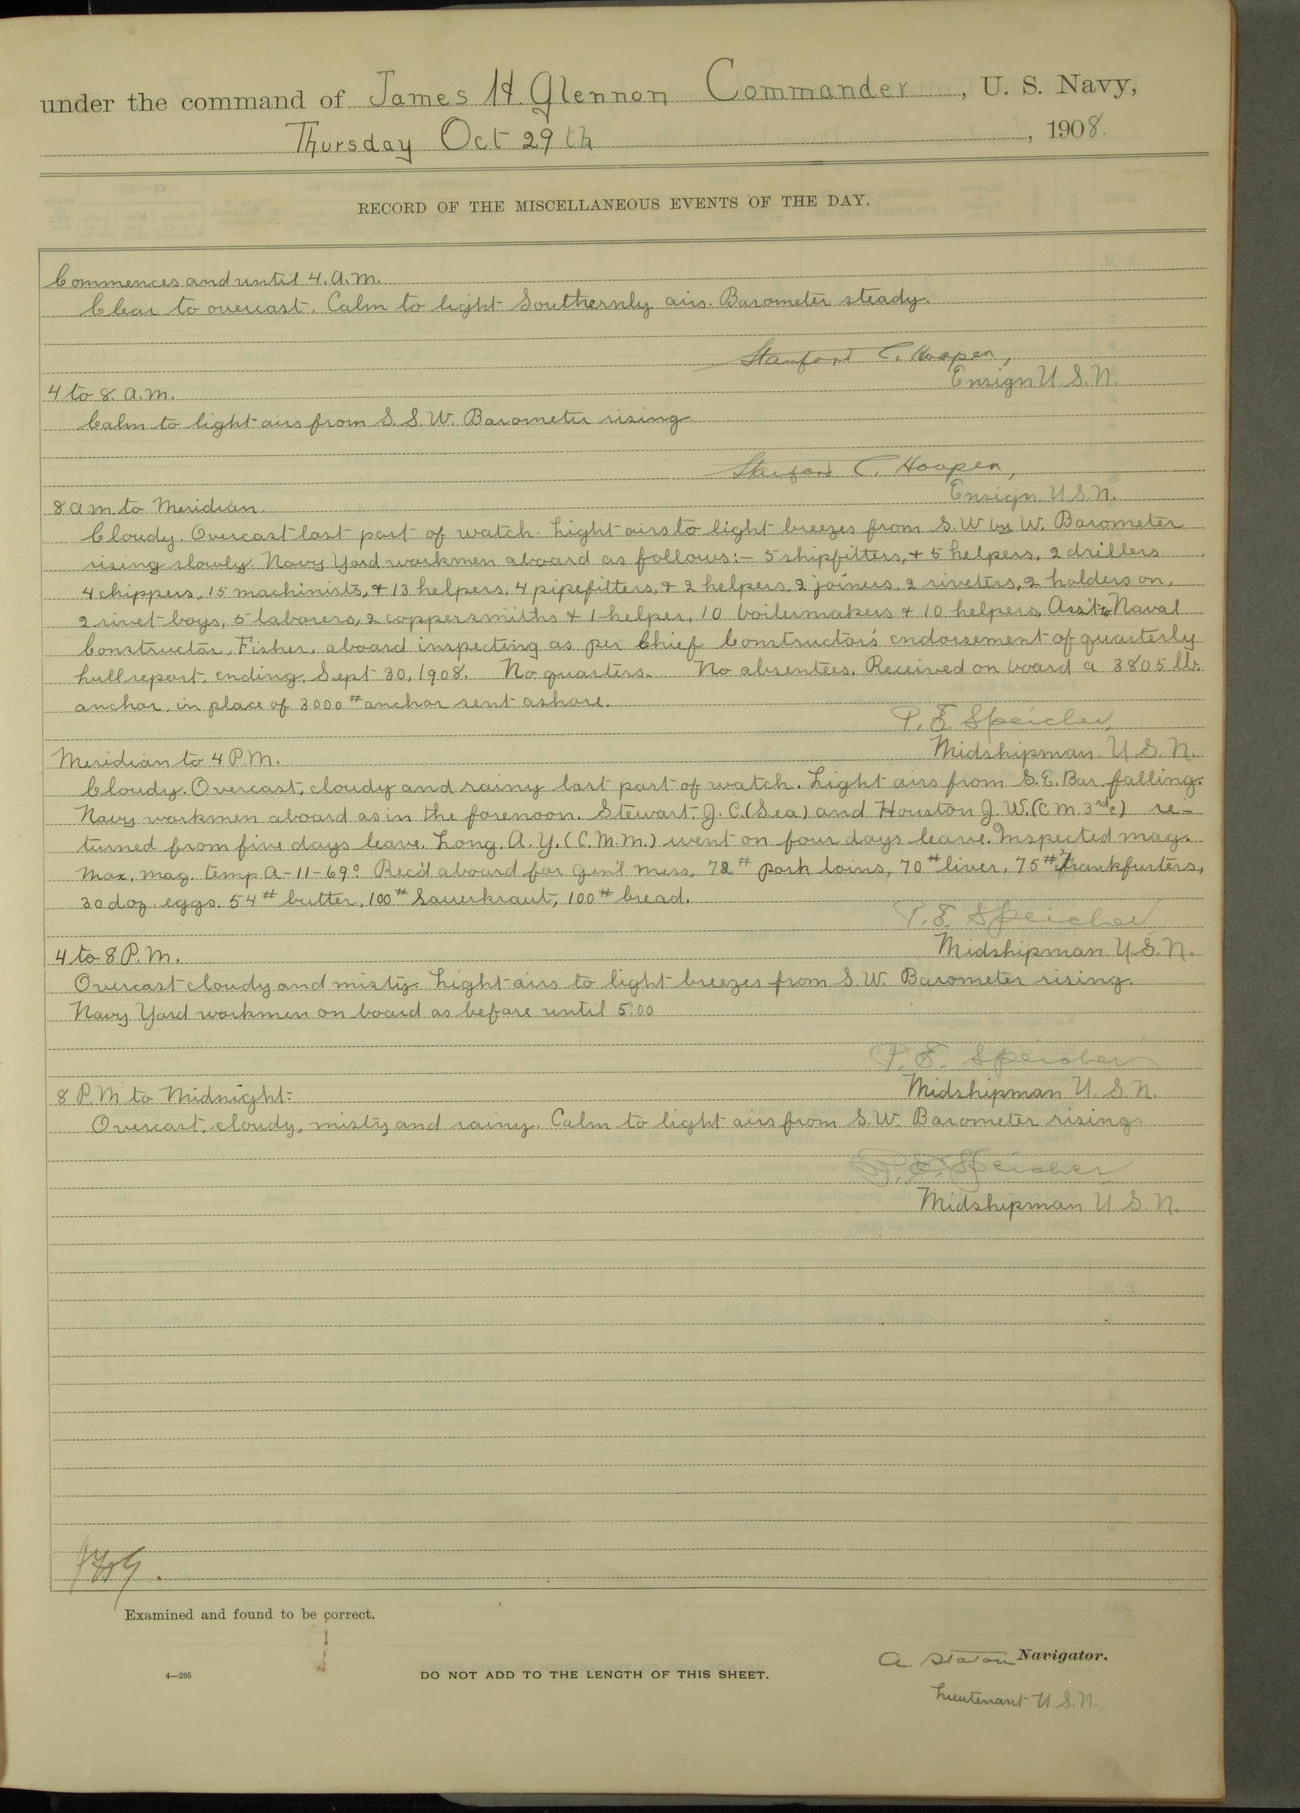 under the command of James H. Glennon Commander, U. S. Navy,
Thursday Oct 29th, 1908.
RECORD OF THE MISCELLANEOUS EVENTS OF THE DAY.
Commences and until 4. A.M.
Clear to overcast. Calm to light Southernly airs. Barometer steady.
Stanford C. Hooper,
Ensign U.S.N.
4 to 8. A.M.
Calm to light airs from S.S.W. Barometer rising
Stanford C. Hooper,
Ensign U.S.N.
8 am to Meridian.
Cloudy. Overcast last part of watch. Light airs to light breezes from S.W by W. Barometer
rising slowly. Navy Yard workmen aboard as follows:- 5 shipfitters, + 5 helpers, 2 drillers
4 chippers, 15 machinists, + 13 helpers, 4 pipefitters, + 2 helpers, 2 joiners, 2 riveters, 2 holders on,
2 rivet boys, 5 laborers, 2 coppersmiths + 1 helper, 10 boilermakers + 10 helpers, Ass't Naval
Constructor, Fisher, aboard inspecting as per Chief Constructor's endorsement of quarterly
hull report, ending. Sept 30, 1908. No quarters. No absentees. Received on board a 3805 lb.
anchor, in place of 3000 # anchor sent ashore.
P. E. Speicher,
Midshipman U.S.N.
Meridian to 4 P.M.
Cloudy. Overcast, cloudy and rainy last part of watch. Light airs from S.E. Bar. falling.
Navy workmen aboard as in the forenoon. Stewart. J.C. (Sea) and Houston J. W. (C M. 3rd c) re-
turned from five days leave. Long. A.Y. (C.M.M.) went on four days leave. Inspected mags.
Max. mag. temp A-11-69° Rec'd aboard for gen'l mess, 72 # pork loins, 70 # liver, 75 # frankfurters,
30 doz. eggs. 54 # butter, 100 # Sauerkraut, 100 # bread.
P. E. Speicher
Midshipman U.S.N.
4 to 8 P.M.
Overcast cloudy and misty. Light airs to light breezes from S.W. Barometer rising.
Navy Yard workmen on board as before until 5:00
P. E. Speicher
Midshipman U.S.N.
8 P.M to Midnight:
Overcast, cloudy, misty and rainy. Calm to light airs from S.W. Barometer rising.
P. E. Speicher
Midshipman U.S.N.
JHG.
Examined and found to be correct.
A. Staton Navigator.
4—265
DO NOT ADD TO THE LENGTH OF THIS SHEET.
Lieutenant U.S.N.